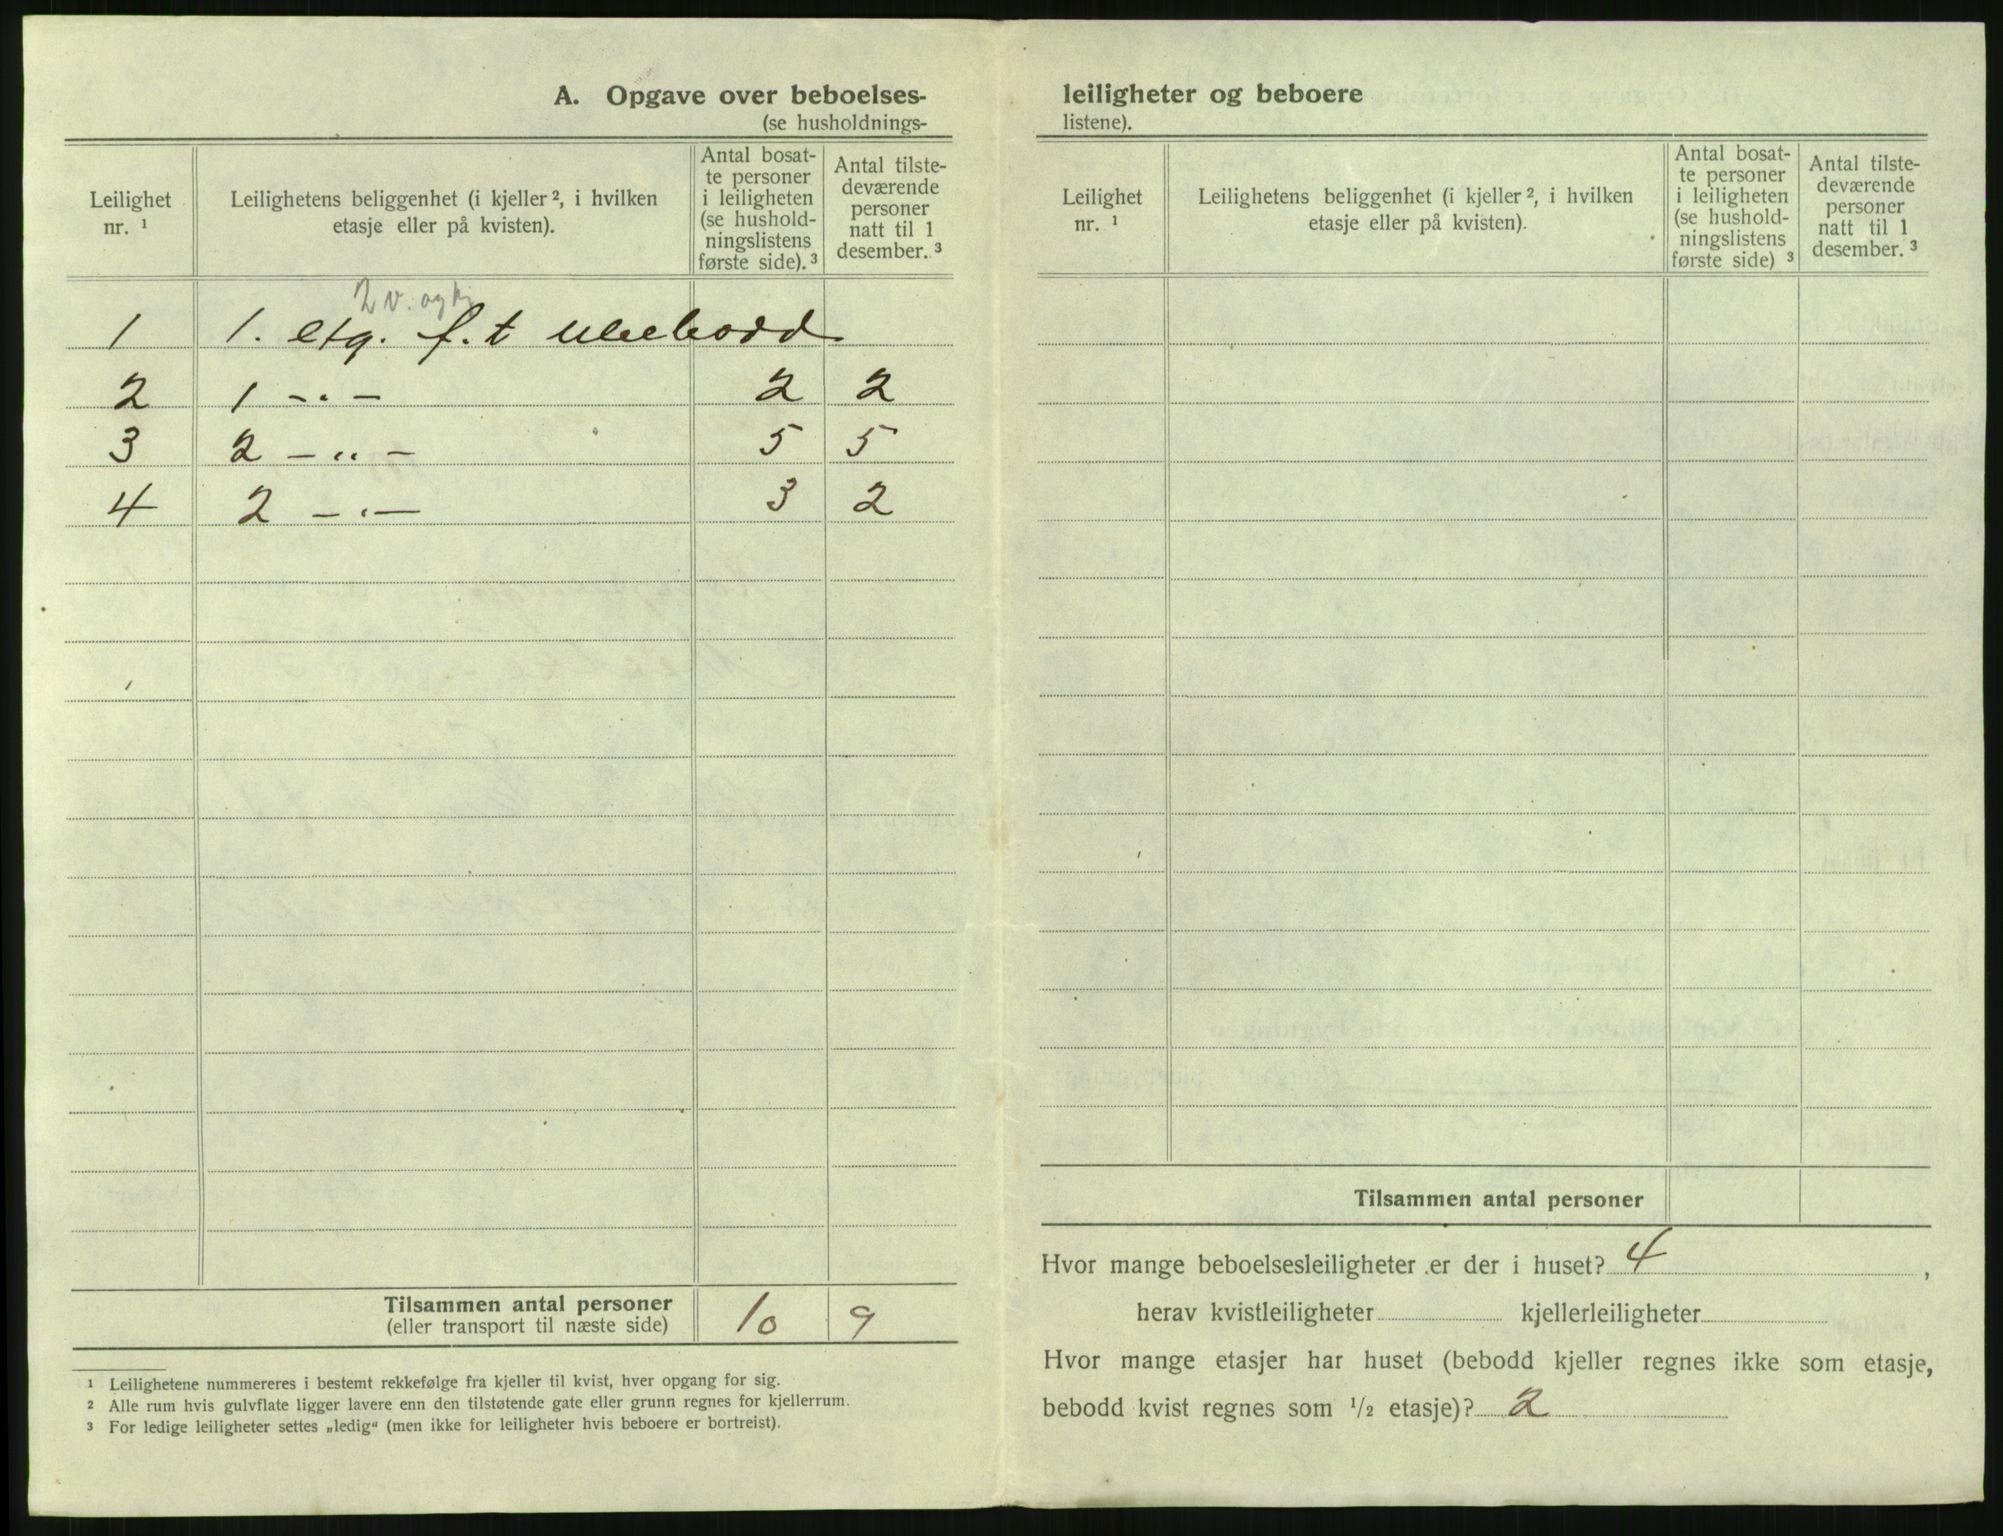 A. Opgave over beboelses-
(se husholdnings-
Leilighet nr. ¹
Leilighetens beliggenhet (i kjeller ², i hvilken etasje eller på kvisten).
Antal bosat-
te personer
i leiligheten
(se hushold-
ningslistens
første side). ³
Antal tilste-
deværende
personer
natt til 1
desember. ³
2 v. og kj
1 1. etg. f. t ubebodd
2 1 -"- 2 2
3 2 -"- 5 5
4 2 -"- 3 2
Tilsammen antal personer 10 9
(eller transport til næste side)
¹ Leilighetene nummereres i bestemt rekkefølge fra kjeller til kvist, hver opgang for sig.
² Alle rum hvis gulvflate ligger lavere enn den tilstøtende gate eller grunn regnes for kjellerrum.
³ For ledige leiligheter settes „ledig“ (men ikke for leiligheter hvis beboere er bortreist).
leiligheter og beboere
listene).
Leilighet nr. ¹
Leilighetens beliggenhet (i kjeller ², i hvilken etasje eller på kvisten).
Antal bosat-
te personer
i leiligheten
(se hushold-
ningslistens
første side) ³
Antal tilste-
deværende
personer
natt til 1
desember. ³
Tilsammen antal personer
Hvor mange beboelsesleiligheter er der i huset? 4 ,
herav kvistleiligheter kjellerleiligheter
Hvor mange etasjer har huset (bebodd kjeller regnes ikke som etasje,
bebodd kvist regnes som 1/2 etasje)? 2